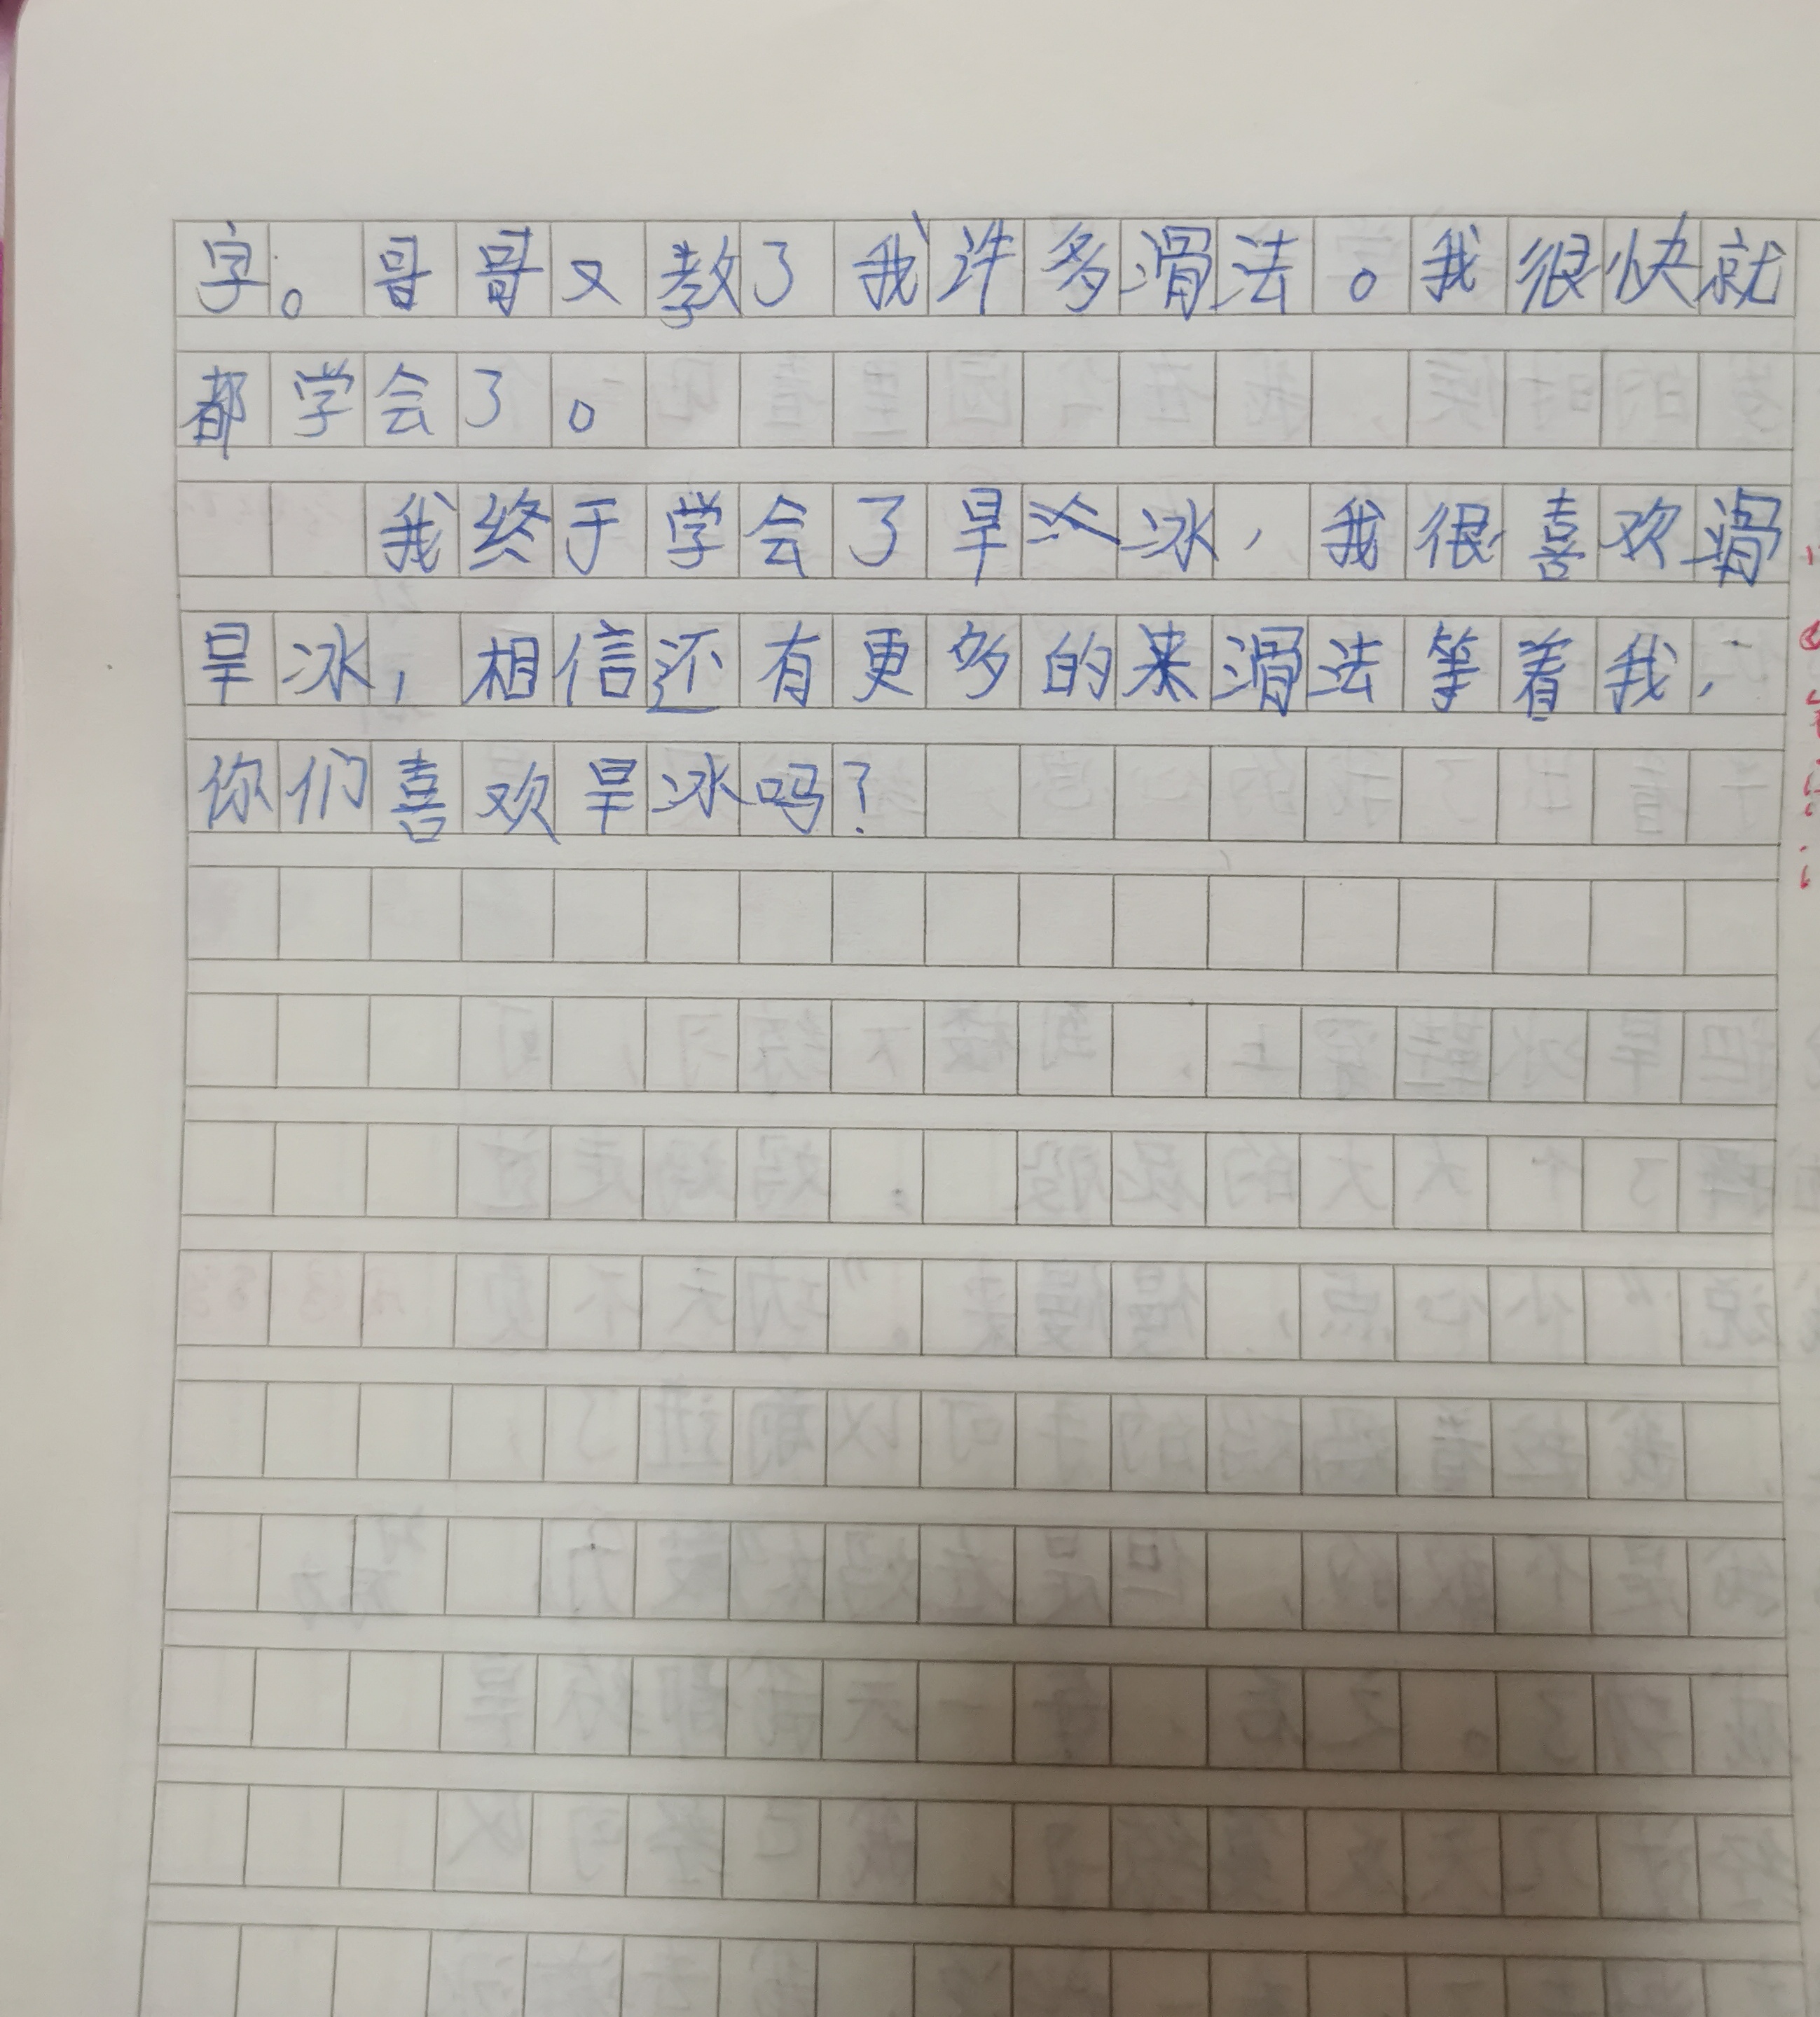 字。哥哥又教了我许多滑法。我很快就
都学会了。
我终于学会了旱冰，我很喜欢滑
旱冰，相信还有更多的滑法等着我，
你们喜欢旱冰吗？